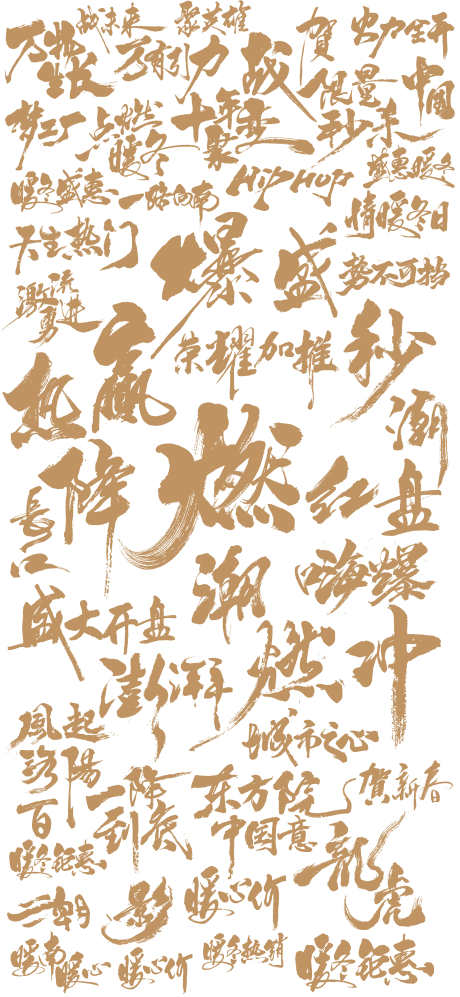 战未来
聚英雄
贺
火力全开
万物
生长
万有引力
战
限量
秒杀
中国
梦工厂
点燃
暖冬
十年
聚变
盛惠暖冬
暖冬盛惠
一路向南
HipHop
情暖冬日
天生热门
爆
盛
势不可挡
激流
勇进
赢
荣耀加推
秒
热
潮
降
燃
红
盘
長
江
潮
嗨爆
盛大开盘
澎湃
燃
冲
風起
洛陽
城市之心
百
一降
到底
东方院
中国意
贺新春
暖冬钜惠
龍
虎
影
暖心价
暖南
暖心
暖心价
暖冬热销
暖冬钜惠